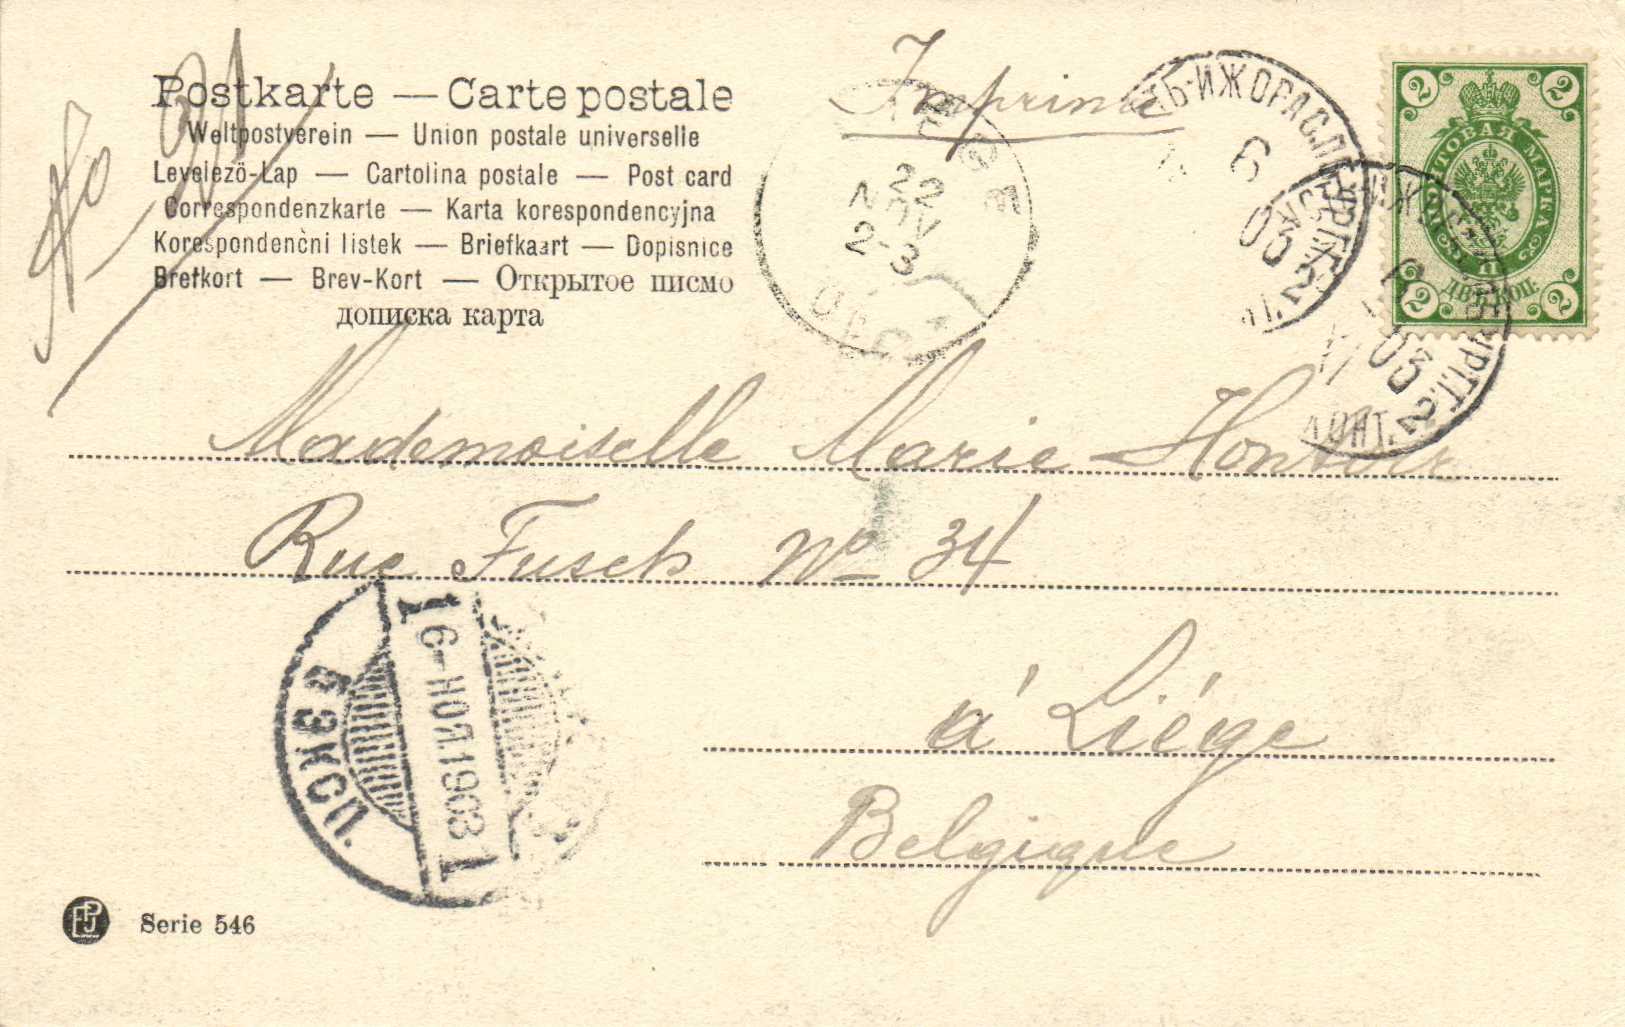 No 91
Postkarte — Carte postale
Weltpostverein — Union postale universelle
Levelező-Lap — Cartolina postale — Post card
Correspondenzkarte — Karta korespondencyjna
Korespondenční lístek — Briefkaart — Dopisnice
Brefkort — Brev-Kort — Открытое письмо
дописка карта
Imprimé
22
NOV
2-3
ТЬ-ИЖОРА С.ПЕТЕРБ.
6
03
2
ПОЧТОВАЯ МАРКА
ДВѢ КОП.
2
2
2
2
XI
03
2
Mademoiselle Marie
Rue Fusch No 34
à Liége
Belgique
1
6-НОЯ.1903
1
ЭКСП.
EPJ
Serie 546